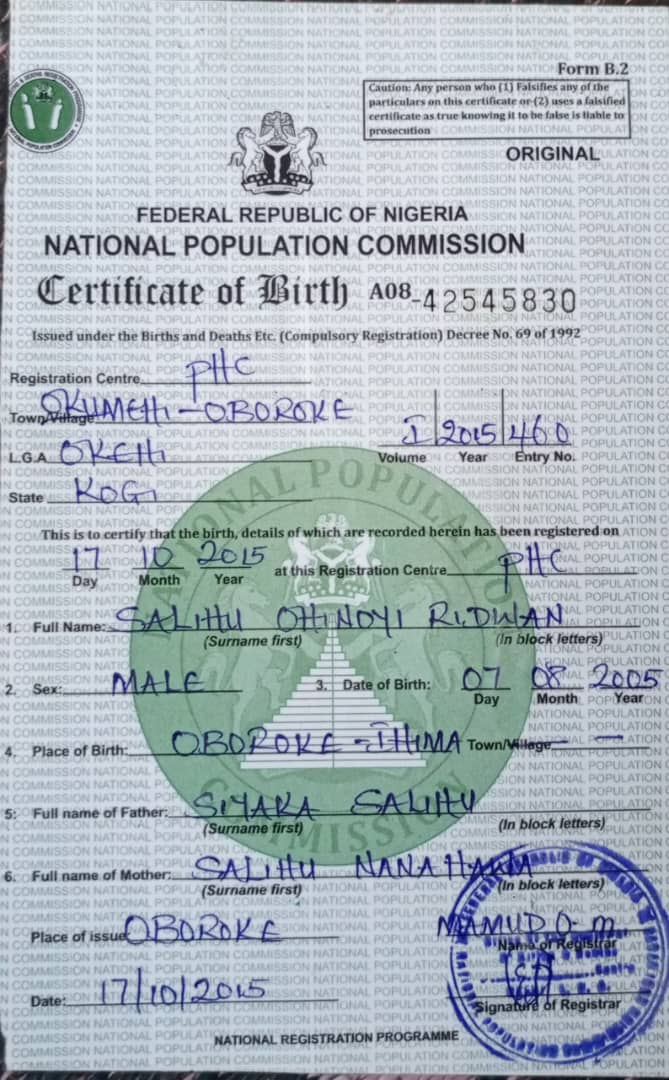 Form B.2
Caution: Any person who (1) Falsifies any of the
particulars on this certificate or (2) uses a falsified
certificate as true knowing it to be false is liable to
prosecution
ORIGINAL
FEDERAL REPUBLIC OF NIGERIA
NATIONAL POPULATION COMMISSION
Certificate of Birth A08-42545830
Issued under the Births and Deaths Etc. (Compulsory Registration) Decree No. 69 of 1992
Registration Centre PHC
Town/Village OKUMEHI-OBOROKE
I 2015 460
L.G.A OKEHI Volume Year Entry No.
State KOGI
This is to certify that the birth, details of which are recorded herein has been registered on
17 10 2015 at this Registration Centre PHC
Day Month Year
1. Full Name: SALIHU OHINOYI RIDWAN
(Surname first) (In block letters)
2. Sex: MALE 3. Date of Birth: 07 08 2005
Day Month Year
4. Place of Birth: OBOROKE-IHIMA Town/Village
5: Full name of Father: SIYAKA SALIHU
(Surname first) (In block letters)
6. Full name of Mother: SALIHU NANA HAWA
(Surname first) (In block letters)
Place of issue OBOROKE MAMUD O. M
Name of Registrar
Date: 17/10/2015
Signature of Registrar
NATIONAL REGISTRATION PROGRAMME
NATIONAL POPULATION COMMISSION